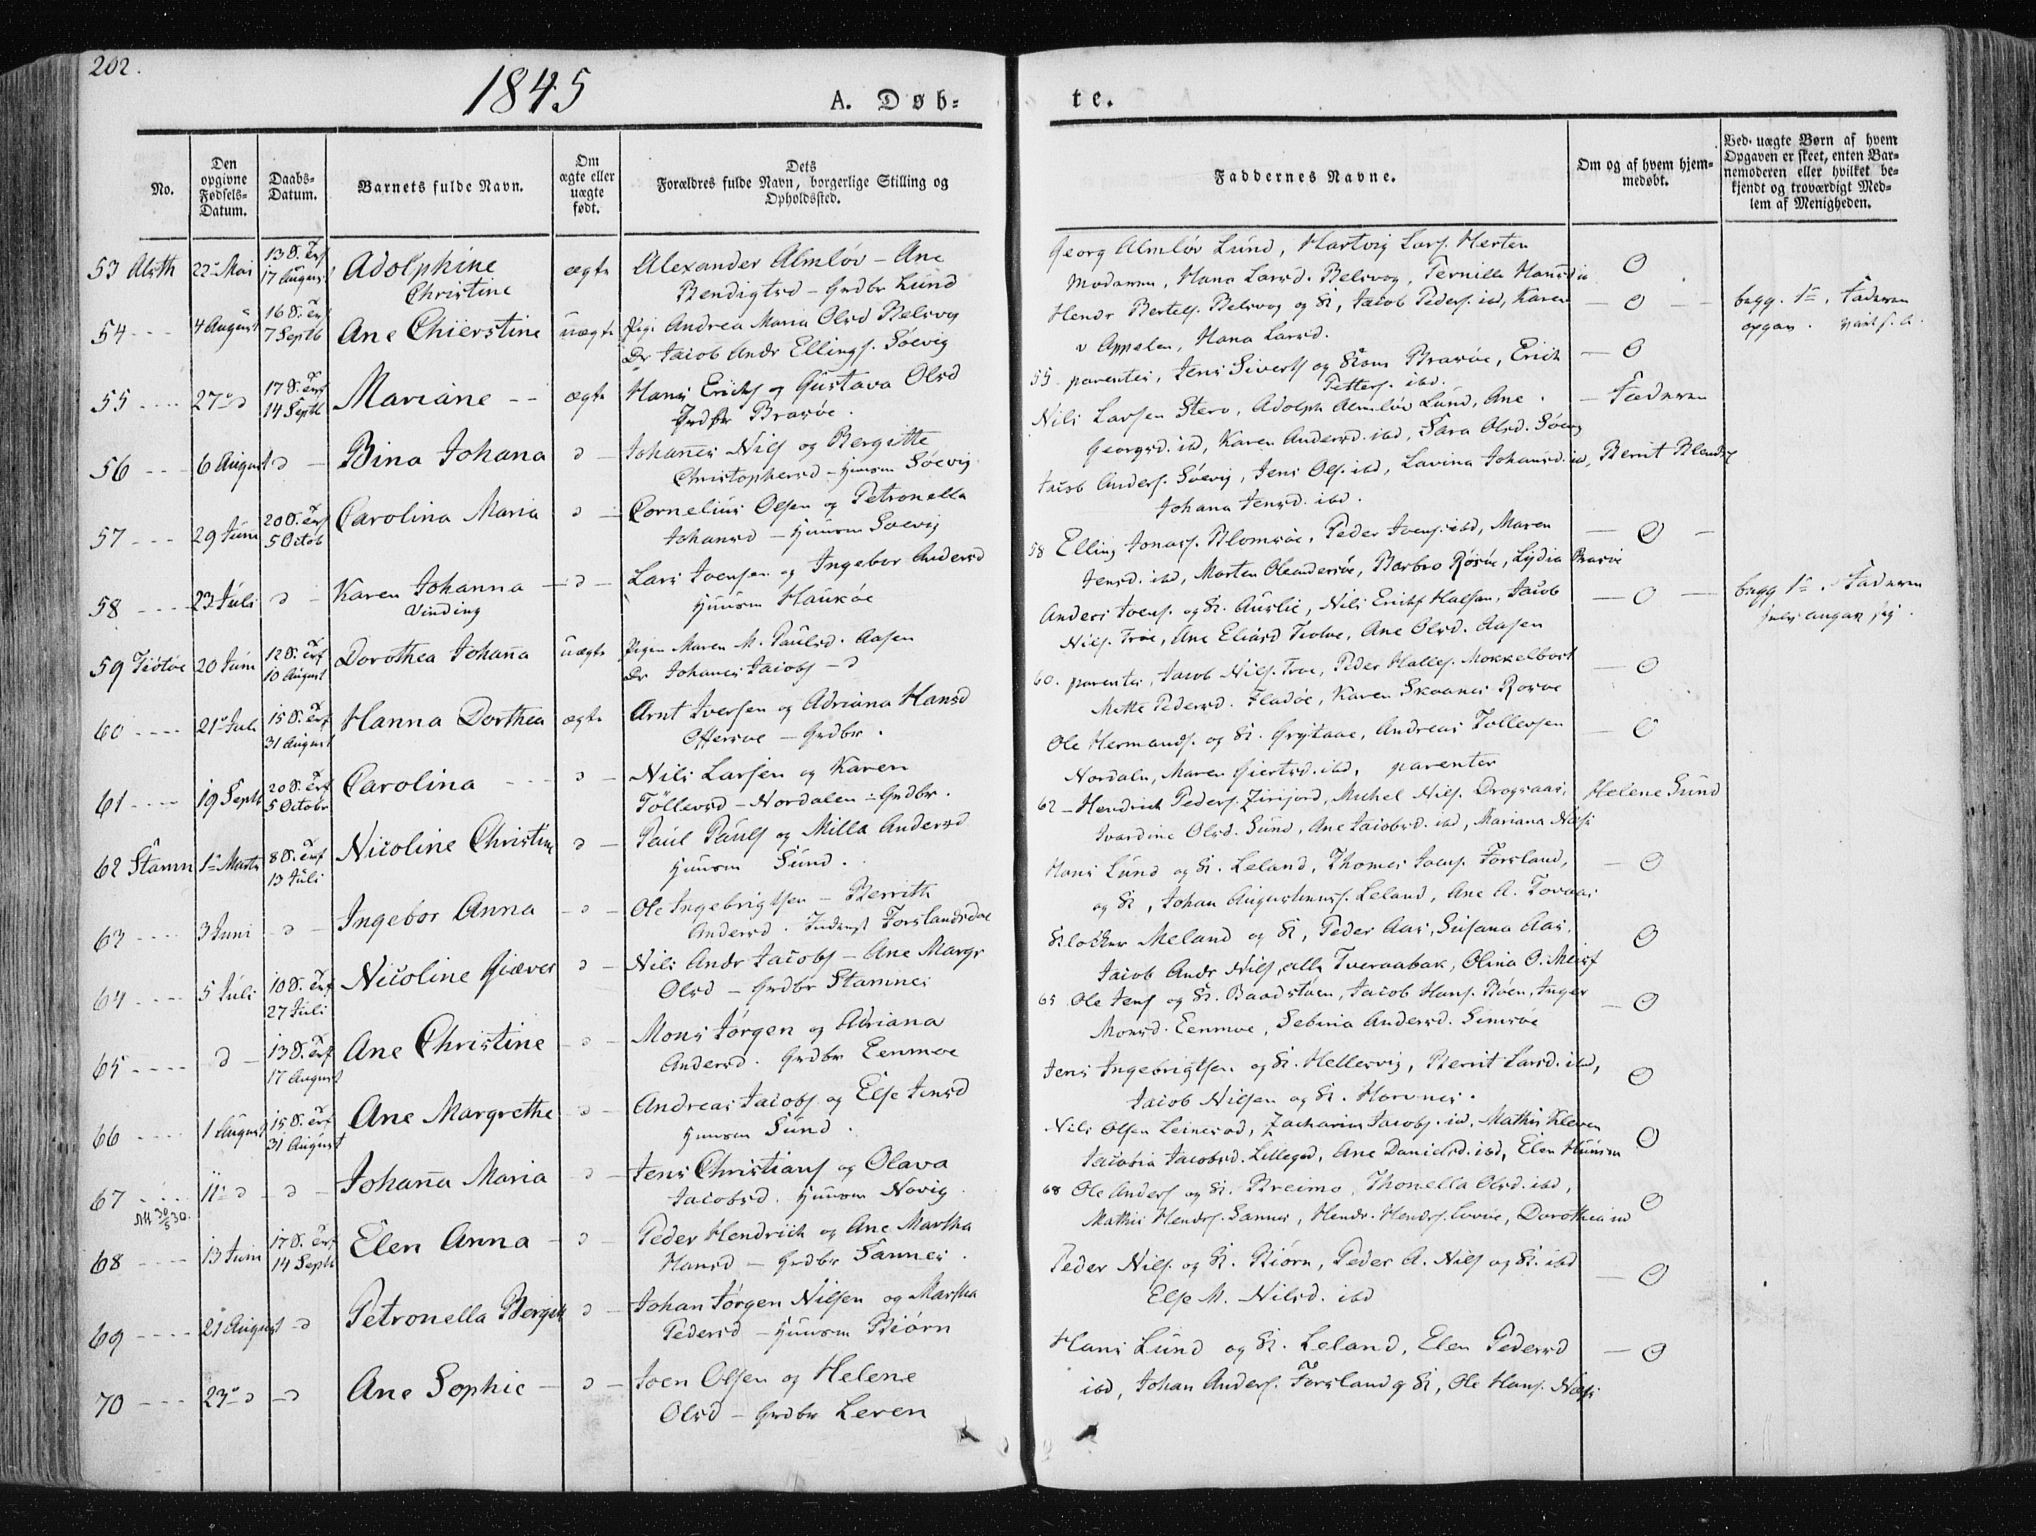 202.
1845
A. Døb-
te.
No.
Den opgivne Fødsels-Datum.
Daabs-Datum.
Barnets fulde Navn.
Om ægte eller uægte født.
Dets Forældres fulde Navn, borgerlige Stilling og Opholdssted.
Faddernes Navne.
Om og af hvem hjem-medøbt.
Ved uægte Børn af hvem Opgaven er skeet, enten Bar-nemoderen eller hvilket be-kjendt og troværdigt Med-lem af Menigheden.
53 Alsth 22 Mai 13 S. Trf 17 August Adolphine Christine ægte Alexander Almløv - Ane
Bendigtsd - Grdbr Lund
Georg Almløv Lund, Hartvig Lars. Herten
Moderen, Hana Larsd. Belsvog, Pernilla Hansd
54 4 August 16 S. Trf 7 Septb Ane Chierstine uægte Pige Andrea Maria Olsd Belsvog
Dr Jacob Andr Ellings. Søevig
Hendr Bertels. Belsvog og K, Jacob Peders. ibd, Karen
Hana Larsd.
begg. 1ste, Faderen
opgav
55 27 d 17 S. Trf 14 Septb Mariane ægte Hans Erichs og Gustava Olsd
Grdbr Brasøe.
55. parentes, Jens Siverts og Brasøe, Erich
Petters. ibd.
56 6 August d Bina Johana d Johannes Nils og Bergitte
Christophersd - Huusm Søevig
Nils Larsen Stero, Adolph Almløv Lund, Ane
Georgsd. ibd, Karen Andersd. ibd, Sara Olsd. Søevig
Faderen
57 29 Juni 20 S. Trf 5 Octob Carolina Maria d Cornelius Olsen og Petronella
Johansd - Huusm Søevig
Jacob Anders. Søevig, Jens Ols. ibd, Lavina Johansd. ibd, Berrit
Johana Jensd. ibd.
58 23 Juli d Karen Johanna Vinding d Lars Ivensen og Ingebor Andersd
Huusm Haukøe
58 Elling Jonas. Blomsøe, Peder Ivens. ibd, Maren
Jensd. ibd, Morten Oleandersøe, Barbro Røsøe, Lydia Brasøe
59 Tiøtøe 20 Juni 12 S. Trf 10 August Dorothea Johana uægte Pigen Maren M. Paulsd. Aasen
Dr Johanes Jacobs - d
Anders Ivens. og K. Auslie, Nils Erichs Halsan, Jacob
Nils. Trøe, Ane Eliasd Tvolve, Ane Olsd. Aasen
begg 1ste, Faderen
selv angav sig.
60 21 Juli 15 S. Trf 31 August Hanna Dorthea ægte Arnt Iversen og Adriana Hansd
Offersøe - Grdbr.
60. parentes, Jacob Nils. Troe, Peder Halles. Mokkelbost
Mette Pedersd. Fladøe, Karen Skaanes Rosøe
61 19 Septb 20 S. Trf 5 Octobr Carolina d Nils Larsen og Karen
Tøllevsd - Nordalen - Grdbr.
Ole Hermands. og K. Grytaae, Andreas Tollevsen
Nordaln, Maren Giertsd. ibd, parentes
62 Stamn 1 Marts 8 S. Trf 13 Juli Nicoline Christine d Paul Pauls og Milla Andersd
Huusm Sund.
62 - Hendrich Peders. Zirijord, Michel Nils. Dragsaas,
Ivardine Olsd. Sund, Ane Jacobsd. ibd, Mariana
Helene Sund
63 3 Juni d Ingebor Anna d Ole Ingebrigtsen - Berrith
Andersd. Inderst Forslandsdae
Hans Lund og K. Leland, Thomes Joens. Forsland,
og K, Johan Augustinuss. Leland, Ane A. Tovaas
64 5 Juli 10 S. Trf 27 Juli Nicoline Giæver d Nils Andr Jacobs - Ane Margr
Olsd - Grdbr Stamnes
Klocker Meland og K, Peder Aas, Susana Aas,
Jacob Andr Nils, alle Tveraabak, Olina O.
65 d 13 S. Trf 17 August Ane Christine d Mons Jørgen og Adriana
Andersd. Grdbr Eenmoe
65 Ole Jens og K. Baadstøen, Jacob Hans. Bøen, Inger
Monsd. Eenmoe, Sebina Andersd. Simsøe
66 1 August 15 S. Trf 31 August Ane Margrethe d Andreas Jacobs og Else Jensd
Huusm Sund.
Jens Ingebrigtsen og K. Hellesvig, Berrit Larsd. ibd,
Jacob Nilsen og K. Horvnes.
67 11 d d Johana Maria d Jens Christians og Olava
Jacobsd. Huusm Novig
Nils Olsen Leinesod, Zacharias Jacobs. ibd, Mathis Kleven
Jacobia Jacobsd. Lillegod, Ane Danielsd. ibd, Elen Huusm
68 13 Juni 17 S. Trf 14 Septb Elen Anna d Peder Hendrich og Ane Martha
Hansd - Grdbr Sannes.
68 Ole Anders og K. Breimo, Thonella Olsd. ibd,
Mathis Hendrs. Sannes, Hendr. Hendrs. Lovøe, Dorothea ibd
69 21 August d Petronella Bergith d Johan Jørgen Nilsen og Martha
Pedersd - Huusm Biørn
Peder Nils. og K. Biørn, Peder A. Nils og K. ibd
Else M. Nilsd. ibd
70 23 d d Ane Sophie d Joen Olsen og Helene
Olsd - Grdbr Leren
Hans Lund og K. Leland, Elen Pedersd
ibd, Johan Anders. Forsland og K, Ole Hans. Næss